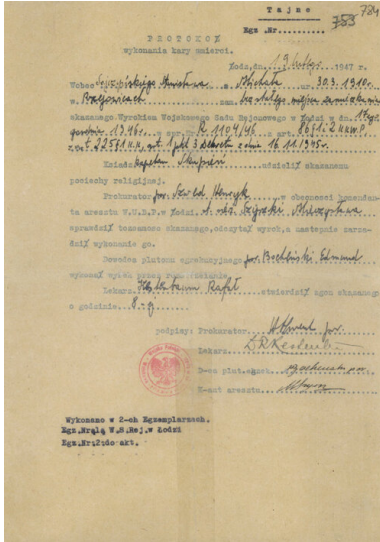 Tajne
784
Egz.Nr..........
753
PROTOKÓŁ
wykonania kary śmierci.
Łódź,dn. 19 lutego 1947 r.
Wobec Stanisława s. Michała ur. 30.3.1910r.
w. zam. bez stałego miejsca zamieszkania
skazanego Wyrokiem Wojskowego Sądu Rejonowego w Łodzi w dn. 17
grudnia 1946r. w spr.Nr. R 1104/46 z art. 86 § 1 i 2 K.K.W.P.
z art. 225 § 1 K.K, art. 1 pkt 3 Dekretu z dnia 16.11.1945r.
Ksiądz kapelan Skupień udzielił skazanemu
pociechy religijnej.
Prokurator por. Szwed Henryk w obecności komendan-
ta aresztu W.U.B.P w Łodzi Mieczysława
sprawdził tożsamość skazanego, odczytał wyrok, a następnie zarzą-
dził wykonanie go.
Dowódca plutonu egzekucyjnego por. Edmund
wykonał wyrok przez rozstrzelanie.
Lekarz Rafał stwierdził zgon skazanego
o godzinie 8-ej
podpisy: Prokurator
Lekarz
D-ca plut.egzek.
K-nat aresztu
Wykonano w 2-ch Egzemplarzach.
Egz Nr1dla W.S.Rej.w Łodzi
Egz.Nr:2:do akt.